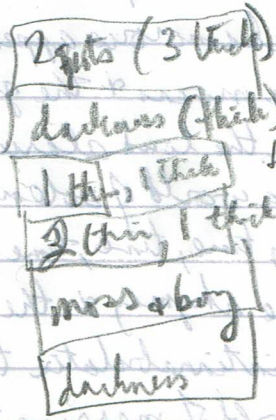 2 pts (3 thick)
darkness (thick)
1 thin, 1 thick
2 thin, 1 thick
moss & bog
darkness